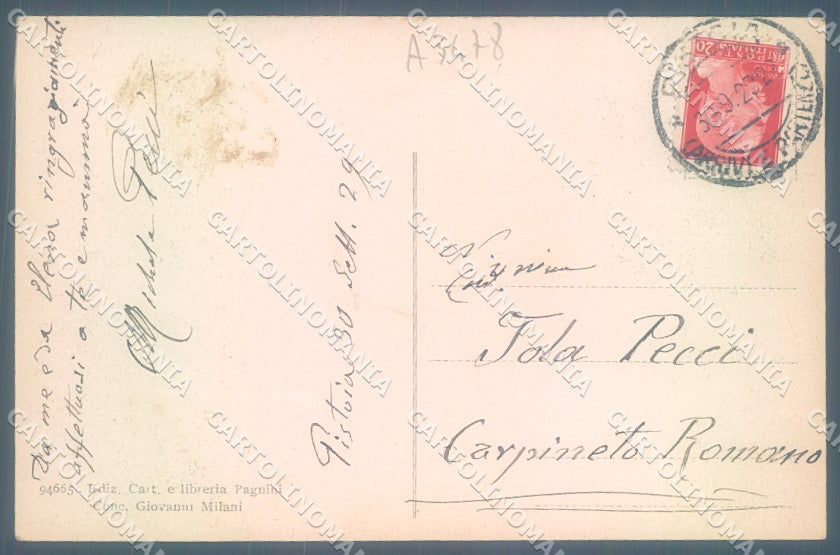 A 3478
Da me e da Elena ringraziamenti
affettuosi a te e mammà
Michele
Pistoia 30 Sett. 29
Signorina
Iola Pecci
Carpineto Romano
94665 Ediz. Cart. e libreria Pagnini
Conc. Giovanni Milani
POSTE
ITALIANE
20
CARTOLINOMANIA